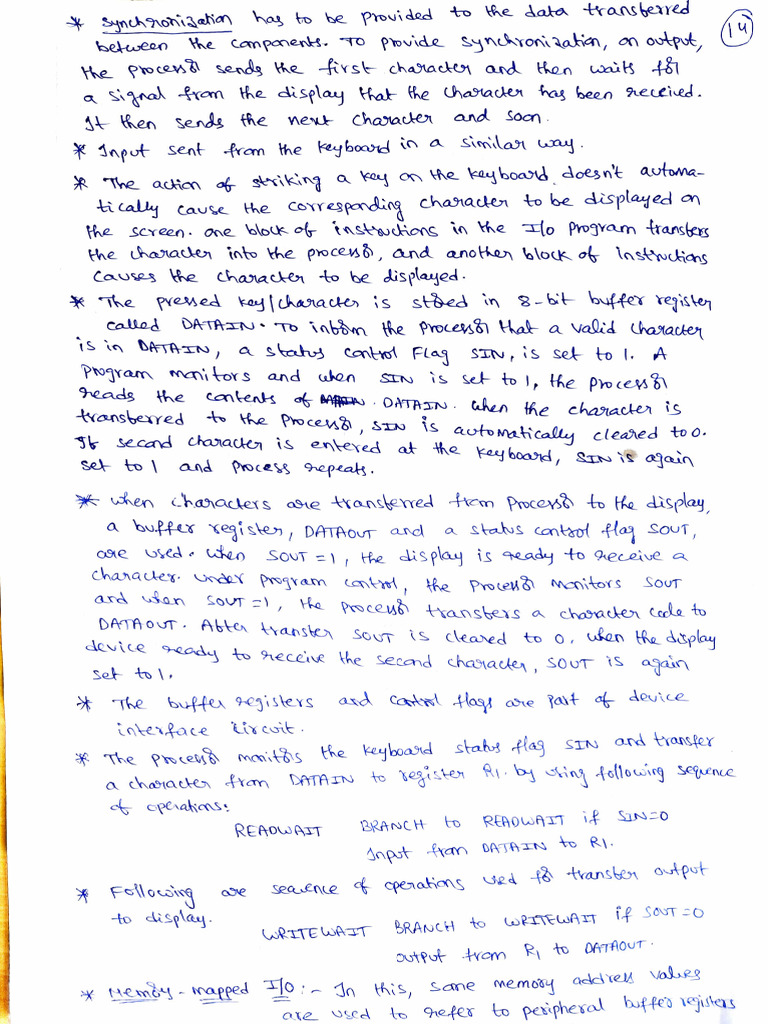 14
* Synchronization has to be provided to the data transferred
between the components. To provide synchronization, on output,
the processor sends the first character and then waits for
a signal from the display that the character has been received.
It then sends the next character and soon.
* Input sent from the keyboard in a similar way.
* The action of striking a key on the keyboard doesn't automa-
tically cause the corresponding character to be displayed on
the screen. one block of instructions in the I/o program transfers
the character into the processor, and another block of instructions
causes the character to be displayed.
* The pressed key/character is stored in 8-bit buffer register
called DATAIN. To inform the processor that a valid character
is in DATAIN, a status control Flag SIN, is set to 1. A
program monitors and when SIN is set to 1, the processor
reads the contents of DATAIN. When the character is
transferred to the processor, SIN is automatically cleared to 0.
If second character is entered at the keyboard, SIN is again
set to 1 and process repeats.
* When characters are transferred from processor to the display,
a buffer register, DATAOUT and a status control flag SOUT,
are used. When SOUT = 1, the display is ready to receive a
character. Under program control, the processor monitors SOUT
and when SOUT = 1, the processor transfers a character code to
DATAOUT. After transfer SOUT is cleared to 0. When the display
device ready to receive the second character, SOUT is again
set to 1.
* The buffer registers and control flags are part of device
interface circuit.
* The processor monitors the keyboard status flag SIN and transfer
a character from DATAIN to register R1. by using following sequence
of operations:
READWAIT BRANCH to READWAIT if SIN=0
Input from DATAIN to R1.
* Following are sequence of operations used for transfer output
to display.
WRITEWAIT BRANCH to WRITEWAIT if SOUT=0
output from R1 to DATAOUT.
* Memory-mapped I/O :- In this, some memory address values
are used to refer to peripheral buffer registers